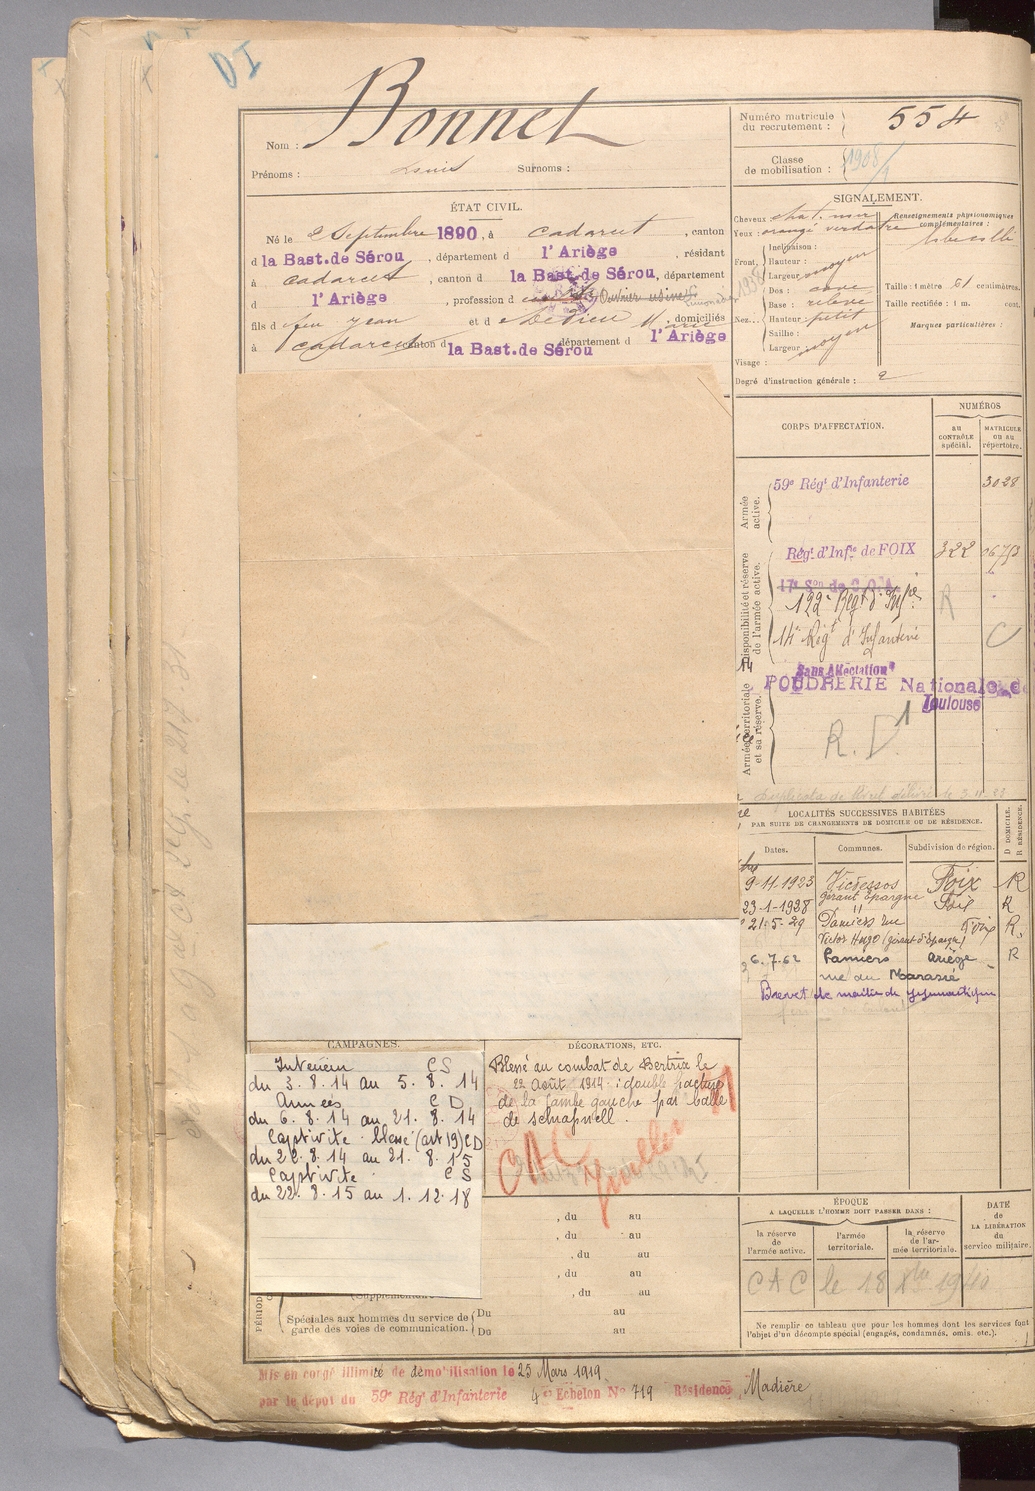 Bonnet
Nom :
Prénoms : Louis Surnoms :
Numéro matricule du recrutement : 554
Classe de mobilisation : 1908/1
ÉTAT CIVIL.
Né le 2 Septembre 1890, à Cadarcet, canton
d la Bast.de Sérou, département d l'Ariège, résidant
à Cadarcet, canton d la Bast.de Sérou, département
d l'Ariège, profession d
fils d feu Jean et d Marie, domiciliés
à Cadarcet canton d la Bast.de Sérou département d l'Ariège
SIGNALEMENT.
Cheveux chat. noir
Yeux : orangé verdâtre
Front, Inclinaison :
Hauteur :
Largeur moyen
Nez... Dos : cave
Base : relevé
Hauteur : petit
Saillie :
Largeur : moyen
Visage :
Renseignements physionomiques complémentaires :
Taille : 1 mètre 61 centimètres.
Taille rectifiée : 1 m. cent.
Marques particulières :
Degré d'instruction générale : 2
CORPS D'AFFECTATION.
NUMÉROS
AU CONTRÔLE spécial.
MATRICULE OU AU répertoire.
Armée active.
59e Régt d'Infanterie 3028
Disponibilité et réserve de l'armée active.
Régt d'Infie de FOIX 322
17e Son de C.O.A.
122e Regt d'Infie R
14e Régt d'Infanterie C
Armée territoriale et sa réserve.
Sans Affectation
POUDRERIE Nationale de
Toulouse
R. D1
LOCALITÉS SUCCESSIVES HABITÉES
PAR SUITE DE CHANGEMENTS DE DOMICILE OU DE RÉSIDENCE.
Dates. Communes. Subdivision de région. D DOMICILE. R RÉSIDENCE.
9-11-1923 Vicdessos Foix R
gérant Epargne
23-1-1928 " Foix R
21-5-29 Pamiers rue Foix R.
Victor Hugo (gérant d'Epargne)
6.7.62 Pamiers Ariège R
rue du
Brevet de maître de gymnastique
CAMPAGNES.
Intérieur CS
du 3.8.14 au 5.8.14
Armées CD
du 6.8.14 au 21.8.14
Captivité blessé (art 19) CD
du 22.8.14 au 21.8.15
Captivité CS
du 22.8.15 au 1.12.18
DÉCORATIONS, ETC.
Blessé au combat de Bertrix le
22 Août 1914 : double facture
de la jambe gauche par balle
de schrapnell.
CAC
, du au
, du au
, du au
, du au
, du au
Spéciales aux hommes du service de garde des voies de communication. Du au
Du au
ÉPOQUE
A LAQUELLE L'HOMME DOIT PASSER DANS :
la réserve de l'armée active.
l'armée territoriale.
la réserve de l'armée territoriale.
DATE de LA LIBÉRATION du service militaire.
CAC le 18 Xbre 1940
Ne remplir ce tableau que pour les hommes dont les services font l'objet d'un décompte spécial (engagés, condamnés, omis, etc.).
Mis en congé illimité de démobilisation le 25 Mars 1919
par le dépôt du 59e Régt d'Infanterie 4e Echelon No 719 Résidence Madière